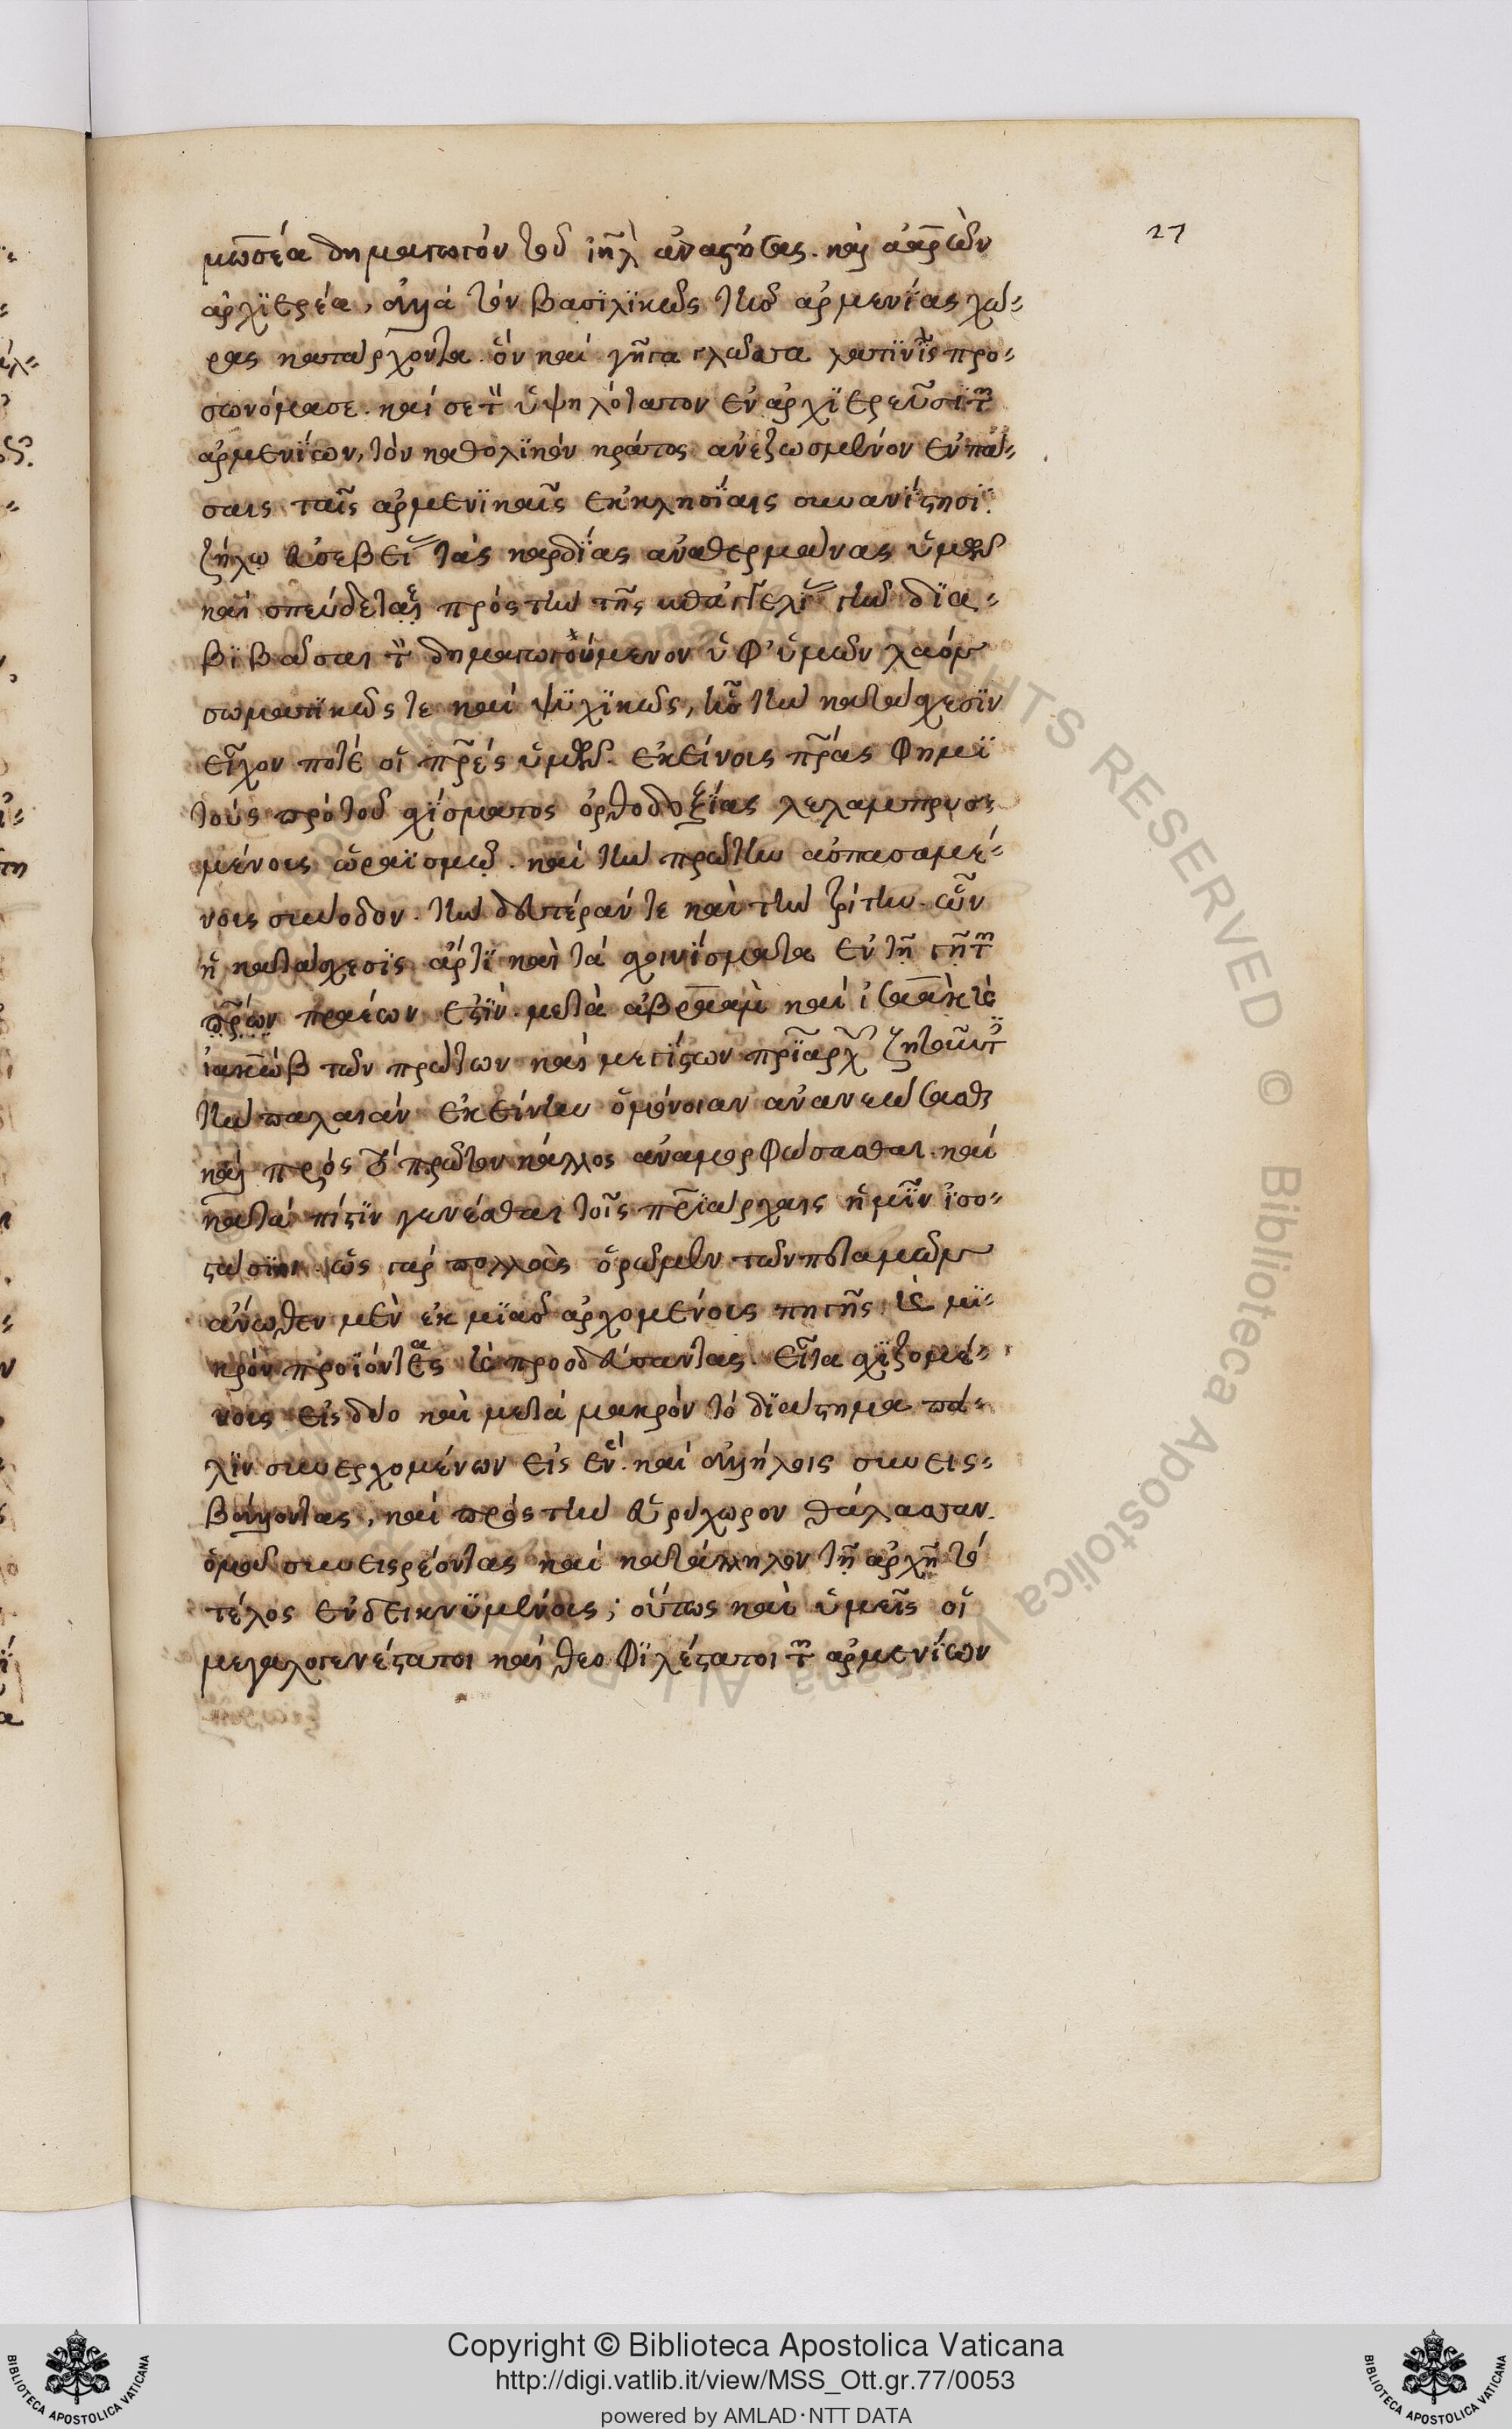 27
μωσέα δημαγωγὸν τοῦ ιηλ ἀναστήσας. καὶ ἀαρὼν
ἀρχϊερέα, ἀλλὰ τὸν βασϊλϊκῶς τῆς ἀρμενίας χώ-
ρας κατάρχοντα ὃν καὶ ῥῆγα γλῶσσα λατϊνὶς προ-
σωνόμασε. καὶ σὲ τὸν ὑψηλότατον ἐν ἀρχϊερεῦσϊ τῶν
ἀρμενίων, τὸν καθολϊκὸν κράτος ἀνεζωσμένον ἐν πά-
σαις ταῖς ἀρμενϊκαῖς ἐκκλησίαις συνανίστησϊ.
ζήλω εὐσεβεί τὰς καρδίας ἀναθερμάνας ὑμῶν
καὶ σπεύδεται πρὸς τὴν τῆς ἐπαγγελί τὴν δϊα-
βϊβάσαι τὸν δημαγωγούμενον ὑφ' ὑμῶν λαὸν
σωματϊκῶς τε καὶ ψϋχϊκῶς, ἧς τὴν κατάσχεσϊν
εἶχον ποτὲ οἱ πρες ὑμῶν. ἐκείνους πρας φημϊ
τοὺς πρὸ τοῦ σχίσματος ὀρθοδοξίας λελαμπρυσ-
μένους ὡραϊσμῶ. καὶ τὴν πρώτην ἀσπασαμέ-
νους σύνοδον. τὴν δευτέραν τε καὶ τὴν τρίτην. ὧν
ἡ κατάσχεσϊς ἄρτϊ καὶ τὰ σχοινίσματα ἐν τῇ γῇ τῶν
πραέων ἐστὶν. μετὰ ἀβρααμ καὶ ἰσαὰκ καὶ
ἰακὼβ τῶν πρώτων καὶ μεγίστων πρϊαρχ ζητοῦντ
τὴν παλαιὰν ἐκείνην ὁμόνοιαν ἀνανεώσασθαι
καὶ πρὸς τὸ πρῶτον κάλλος ἀναμορφώσασθαι. καὶ
κατὰ πίστϊν γενέσθαι τοῖς πρϊάρχαις ἡμῖν ἰσο-
στασίους. ὡς γὰρ πολλοὺς ὁρῶμεν τῶν ποταμῶν
ἄνωθεν μὲν ἐκ μϊᾶς ἀρχομένους πηγῆς καὶ μϊ-
κρὸν προϊόντας καὶ προοδεύσαντας. εἶτα σχϊζομέ-
νους εἰς δύο καὶ μετὰ μακρὸν τὸ δϊάστημα πά-
λϊν συνερχομένων εἰς ἓν. καὶ ἀλλήλοις συνεισ-
βάλλοντας, καὶ πρὸς τὴν εὐρύχωρον θάλασσαν.
ὁμοῦ συνεισρέοντας καὶ κατάλληλον τῇ ἀρχῇ τὸ
τέλος ἐνδεικνϋμένους; οὕτως καὶ ὑμεῖς οἱ
μεγαλογενέστατοι καὶ θεοφϊλέστατοι τῶν ἀρμενίων
Copyright © Biblioteca Apostolica Vaticana
http://digi.vatlib.it/view/MSS_Ott.gr.77/0053
powered by AMLAD·NTT DATA
BIBLIOTECA APOSTOLICA VATICANA
BIBLIOTECA APOSTOLICA VATICANA